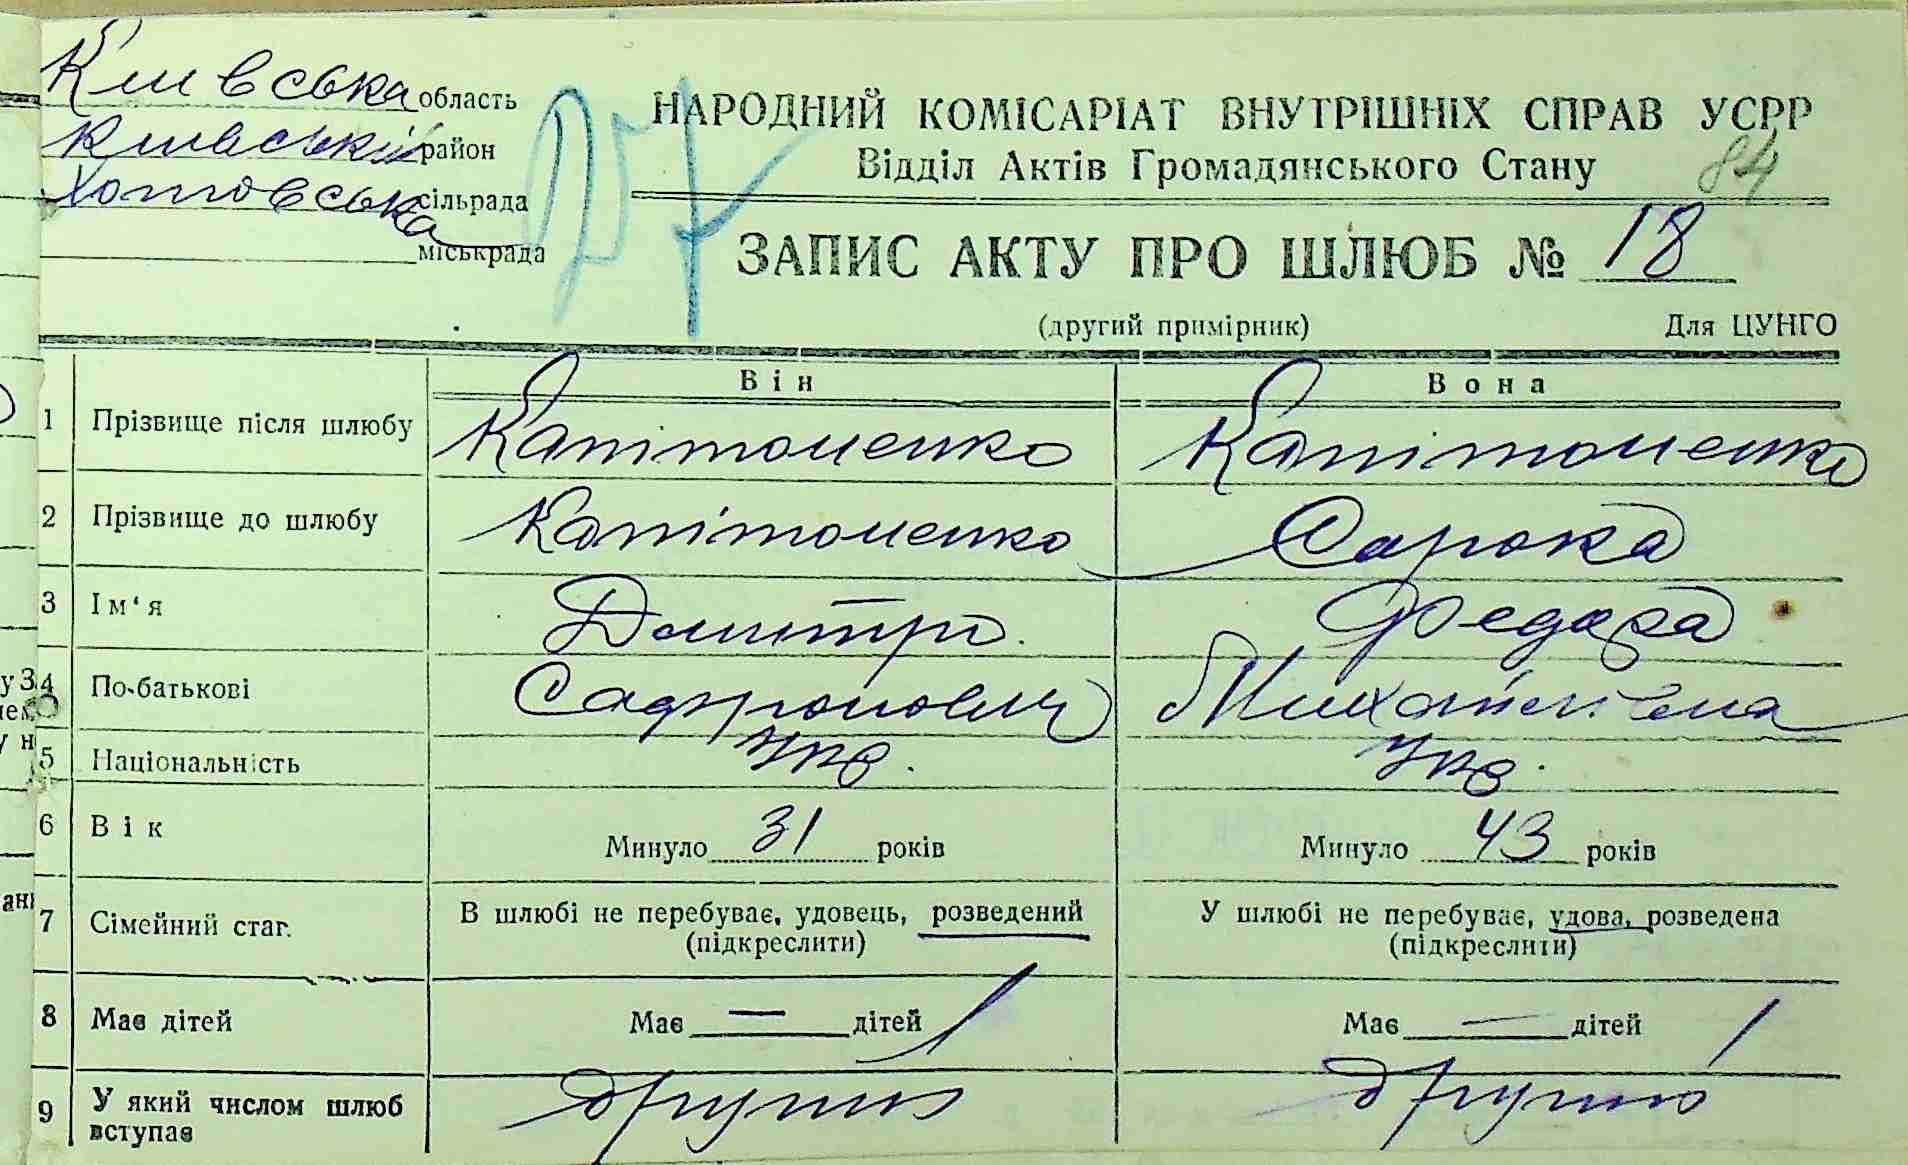 Київська область
Київський район
Хотовська сільрада
міськрада
НАРОДНИЙ КОМІСАРІАТ ВНУТРІШНІХ СПРАВ УСРР
Відділ Актів Громадянського Стану
84
ЗАПИС АКТУ ПРО ШЛЮБ № 18
(другий примірник) Для ЦУНГО
Він Вона
1 Прізвище після шлюбу Капітоненко Капітоненко
2 Прізвище до шлюбу Капітоненко Сорока
3 Ім'я Дмитро Федора
4 По-батькові Сафронович Михайлівна
5 Національність Укр. Укр.
6 Вік Минуло 31 років Минуло 43 років
7 Сімейний стан. В шлюбі не перебуває, удовець, розведений У шлюбі не перебуває, удова, розведена
(підкреслити) (підкреслити)
8 Має дітей Має — дітей Має — дітей
9 У який числом шлюб вступає другий другий